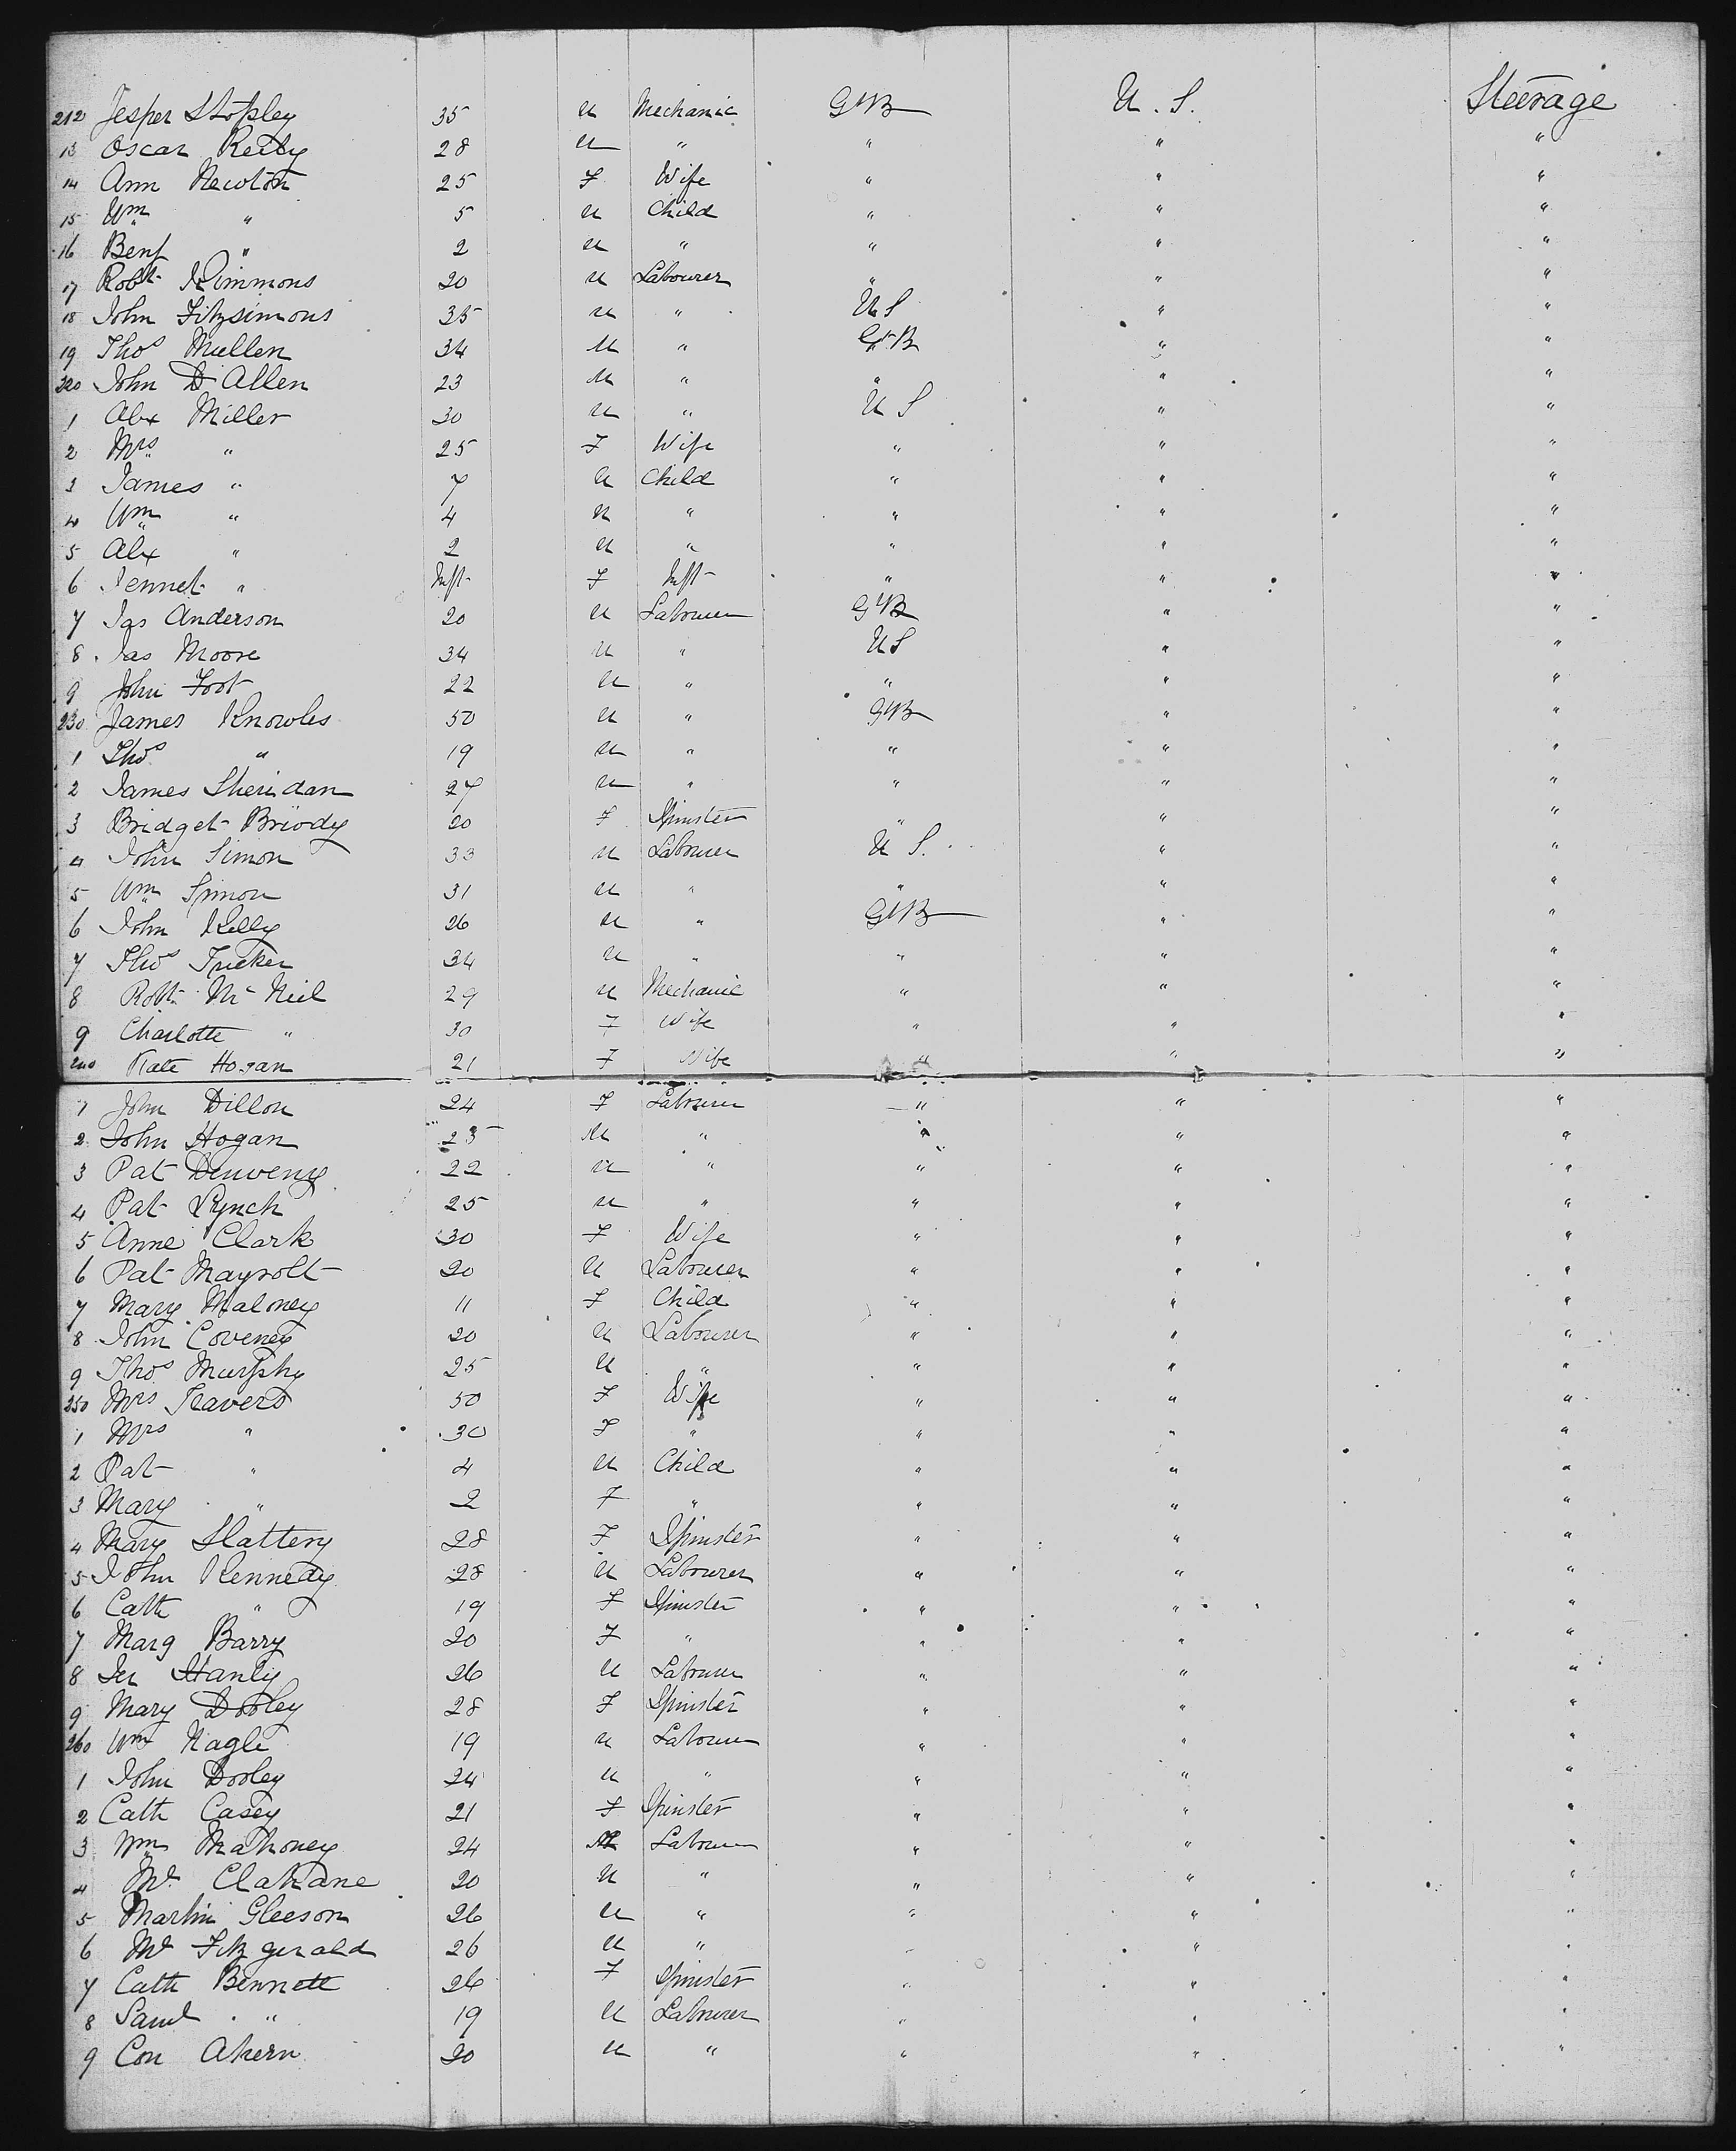 212 Jesper Stopley 35 M Mechanic GB U.S. Steerage
13 Oscar Reily 28 M " " " "
14 Ann Newton 25 F Wife " " "
15 Wm " 5 M Child " " "
16 Benj " 2 M " " " "
17 Robt Kimmons 20 M Labourer " " "
18 John Fitzsimons 35 M " US " "
19 Thos Mullen 34 M " GB " "
220 John D Allen 23 M " " " "
1 Alex Miller 30 M " U S " "
2 Mrs " 25 F Wife " " "
3 James " 7 M Child " " "
4 Wm " 4 M " " " "
5 Alex " 2 M " " " "
6 Jennet " Inft F Inft " " "
7 Jas Anderson 20 M Labourer GB " "
8 Jas Moore 34 M " US " "
9 John Foot 22 M " " " "
230 James Knowles 50 M " GB " "
1 Thos " 19 M " " " "
2 James Sheridan 27 M " " " "
3 Bridget Briody 20 F Spinster " " "
4 John Simon 33 M Labourer U S. " "
5 Wm Simon 31 M " " " "
6 John Kelly 26 M " GB " "
7 Thos Tucker 34 M " " " "
8 Robt McNeil 29 M Mechanic " " "
9 Charlotte " 30 F Wife " " "
240 Kate Hogan 21 F Wife " " "
1 John Dillon 24 F Labourer " " "
2 John Hogan 23 M " " " "
3 Pat 22 M " " " "
4 Pat Lynch 25 M " " " "
5 Anne Clark 30 F Wife " " "
6 Pat 20 M Labourer " " "
7 Mary Maloney 11 F Child " " "
8 John Coveney 20 M Labourer " " "
9 Thos Murphy 25 M " " " "
250 Mrs Travers 50 F Wife " " "
1 Mrs " 30 F " " " "
2 Pat " 4 M Child " " "
3 Mary " 2 F " " " "
4 Mary Slattery 28 F Spinster " " "
5 John Kennedy 28 M Labourer " " "
6 Cath " 19 F Spinster " " "
7 Marg Barry 20 F " " " "
8 Jer Hanly 26 M Labourer " " "
9 Mary Dooley 28 F Spinster " " "
260 Wm Nagle 19 M Labourer " " "
1 John Dooley 24 M " " " "
2 Cath Casey 21 F Spinster " " "
3 Wm Mahoney 24 M Labourer " " "
4 Ml Clahane 20 M " " " "
5 Martin Gleeson 26 M " " " "
6 Ml Fitzgerald 26 M " " " "
7 Cath Bennett 26 F Spinster " " "
8 Saml " 19 M Labourer " " "
9 Con Ahern 20 M " " " "